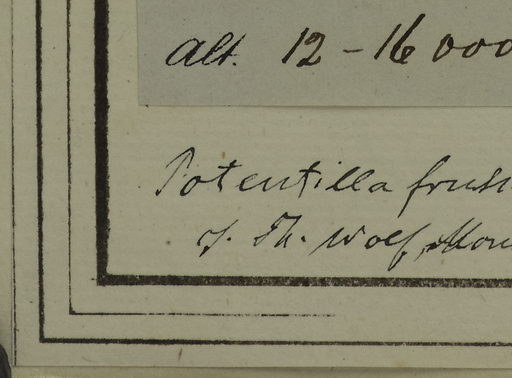 Alt. 12-16000
Potentilla frut
Th. Wolf, Mon